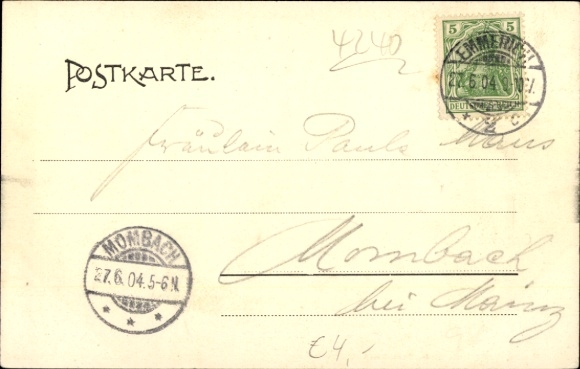 4240
5 5
DEUTSCHES REICH
EMMERICH
27.6.04.
* 2 c
POSTKARTE.
Fräulein Paula Maus
Mombach
bei Mainz
MOMBACH
27.6.04.5-6N.
* * *
€4,-